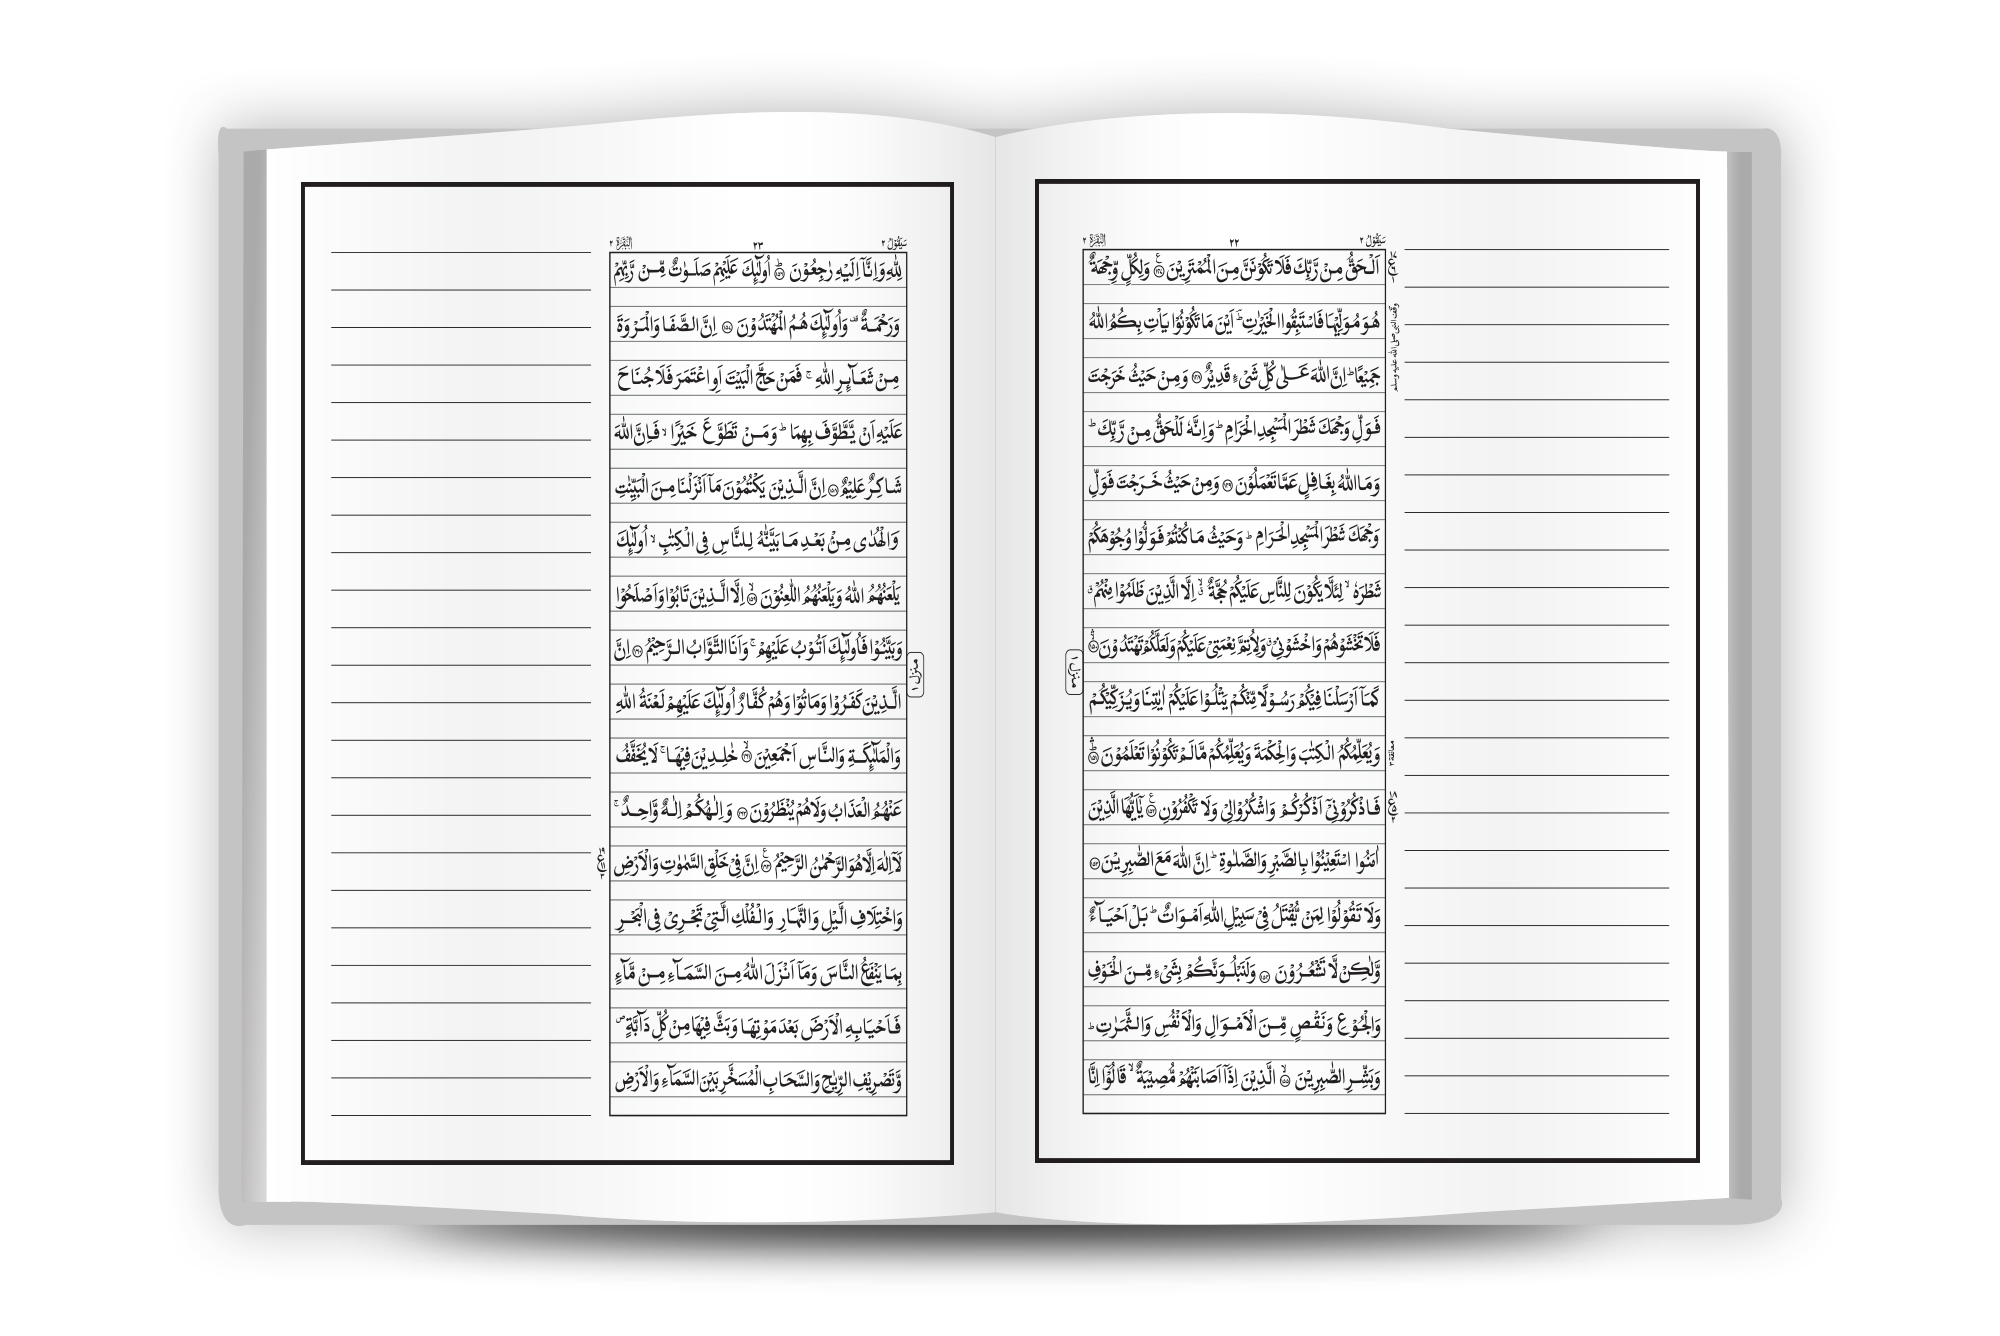 سَيَقُوْلُ ٢
٢٢
اَلْبَقَرَة ٢
اَلْحَقُّ مِنْ رَّبِّكَ فَلَا تَكُوْنَنَّ مِنَ الْمُمْتَرِيْنَ ۝ وَلِكُلٍّ وِّجْهَةٌ
هُوَ مُوَلِّيْهَا فَاسْتَبِقُوا الْخَيْرٰتِ ؔ اَيْنَ مَا تَكُوْنُوْا يَاْتِ بِكُمُ اللّٰهُ
جَمِيْعًا ؕ اِنَّ اللّٰهَ عَلٰى كُلِّ شَىْءٍ قَدِيْرٌ ۝ وَمِنْ حَيْثُ خَرَجْتَ
فَوَلِّ وَجْهَكَ شَطْرَ الْمَسْجِدِ الْحَرَامِ ؕ وَاِنَّهٗ لَلْحَقُّ مِنْ رَّبِّكَ ؕ
وَمَا اللّٰهُ بِغَافِلٍ عَمَّا تَعْمَلُوْنَ ۝ وَمِنْ حَيْثُ خَرَجْتَ فَوَلِّ
وَجْهَكَ شَطْرَ الْمَسْجِدِ الْحَرَامِ ؕ وَحَيْثُ مَا كُنْتُمْ فَوَلُّوْا وُجُوْهَكُمْ
شَطْرَهٗ ۙ لِئَلَّا يَكُوْنَ لِلنَّاسِ عَلَيْكُمْ حُجَّةٌ ۙ اِلَّا الَّذِيْنَ ظَلَمُوْا مِنْهُمْ ۗ
فَلَا تَخْشَوْهُمْ وَاخْشَوْنِىْ ۗ وَلِاُتِمَّ نِعْمَتِىْ عَلَيْكُمْ وَلَعَلَّكُمْ تَهْتَدُوْنَ ۝
كَمَآ اَرْسَلْنَا فِيْكُمْ رَسُوْلًا مِّنْكُمْ يَتْلُوْا عَلَيْكُمْ اٰيٰتِنَا وَيُزَكِّيْكُمْ
وَيُعَلِّمُكُمُ الْكِتٰبَ وَالْحِكْمَةَ وَيُعَلِّمُكُمْ مَّا لَمْ تَكُوْنُوْا تَعْلَمُوْنَ ۝
فَاذْكُرُوْنِىْٓ اَذْكُرْكُمْ وَاشْكُرُوْا لِىْ وَلَا تَكْفُرُوْنِ ۝ يٰٓاَيُّهَا الَّذِيْنَ
اٰمَنُوا اسْتَعِيْنُوْا بِالصَّبْرِ وَالصَّلٰوةِ ؕ اِنَّ اللّٰهَ مَعَ الصّٰبِرِيْنَ ۝
وَلَا تَقُوْلُوْا لِمَنْ يُّقْتَلُ فِىْ سَبِيْلِ اللّٰهِ اَمْوَاتٌ ؕ بَلْ اَحْيَآءٌ
وَّلٰكِنْ لَّا تَشْعُرُوْنَ ۝ وَلَنَبْلُوَنَّكُمْ بِشَىْءٍ مِّنَ الْخَوْفِ
وَالْجُوْعِ وَنَقْصٍ مِّنَ الْاَمْوَالِ وَالْاَنْفُسِ وَالثَّمَرٰتِ ؕ
وَبَشِّرِ الصّٰبِرِيْنَ ۝ الَّذِيْنَ اِذَآ اَصَابَتْهُمْ مُّصِيْبَةٌ ۙ قَالُوْٓا اِنَّا
وقف النبى صلى الله عليه وسلم
معانقة ٢
منزل ١
سَيَقُوْلُ ٢
٢٣
اَلْبَقَرَة ٢
لِلّٰهِ وَاِنَّآ اِلَيْهِ رٰجِعُوْنَ ۝ اُولٰٓئِكَ عَلَيْهِمْ صَلَوٰتٌ مِّنْ رَّبِّهِمْ
وَرَحْمَةٌ ۗ وَاُولٰٓئِكَ هُمُ الْمُهْتَدُوْنَ ۝ اِنَّ الصَّفَا وَالْمَرْوَةَ
مِنْ شَعَآئِرِ اللّٰهِ ۚ فَمَنْ حَجَّ الْبَيْتَ اَوِ اعْتَمَرَ فَلَا جُنَاحَ
عَلَيْهِ اَنْ يَّطَّوَّفَ بِهِمَا ؕ وَمَنْ تَطَوَّعَ خَيْرًا ۙ فَاِنَّ اللّٰهَ
شَاكِرٌ عَلِيْمٌ ۝ اِنَّ الَّذِيْنَ يَكْتُمُوْنَ مَآ اَنْزَلْنَا مِنَ الْبَيِّنٰتِ
وَالْهُدٰى مِنْۢ بَعْدِ مَا بَيَّنّٰهُ لِلنَّاسِ فِى الْكِتٰبِ ۙ اُولٰٓئِكَ
يَلْعَنُهُمُ اللّٰهُ وَيَلْعَنُهُمُ اللّٰعِنُوْنَ ۝ اِلَّا الَّذِيْنَ تَابُوْا وَاَصْلَحُوْا
وَبَيَّنُوْا فَاُولٰٓئِكَ اَتُوْبُ عَلَيْهِمْ ۚ وَاَنَا التَّوَّابُ الرَّحِيْمُ ۝ اِنَّ
الَّذِيْنَ كَفَرُوْا وَمَاتُوْا وَهُمْ كُفَّارٌ اُولٰٓئِكَ عَلَيْهِمْ لَعْنَةُ اللّٰهِ
وَالْمَلٰٓئِكَةِ وَالنَّاسِ اَجْمَعِيْنَ ۝ خٰلِدِيْنَ فِيْهَا ۚ لَا يُخَفَّفُ
عَنْهُمُ الْعَذَابُ وَلَا هُمْ يُنْظَرُوْنَ ۝ وَاِلٰهُكُمْ اِلٰهٌ وَّاحِدٌ ۚ
لَآ اِلٰهَ اِلَّا هُوَ الرَّحْمٰنُ الرَّحِيْمُ ۝ اِنَّ فِىْ خَلْقِ السَّمٰوٰتِ وَالْاَرْضِ
وَاخْتِلَافِ الَّيْلِ وَالنَّهَارِ وَالْفُلْكِ الَّتِىْ تَجْرِىْ فِى الْبَحْرِ
بِمَا يَنْفَعُ النَّاسَ وَمَآ اَنْزَلَ اللّٰهُ مِنَ السَّمَآءِ مِنْ مَّآءٍ
فَاَحْيَا بِهِ الْاَرْضَ بَعْدَ مَوْتِهَا وَبَثَّ فِيْهَا مِنْ كُلِّ دَآبَّةٍ ۖ
وَّتَصْرِيْفِ الرِّيٰحِ وَالسَّحَابِ الْمُسَخَّرِ بَيْنَ السَّمَآءِ وَالْاَرْضِ
منزل ١